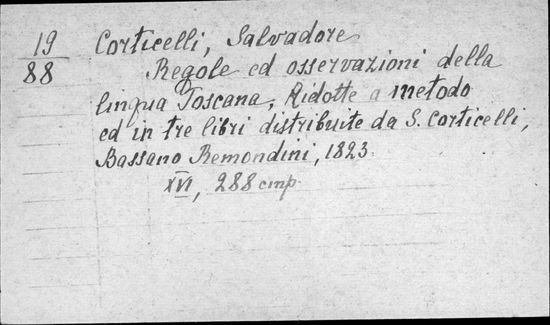 19
88
Corticelli, Salvadore
Regole ed osservazioni della
lingua Toscana, Ridotte a metodo
ed in tre libri distribuite da S. Corticelli,
Bassano Remondini, 1823
XVI, 288 стр